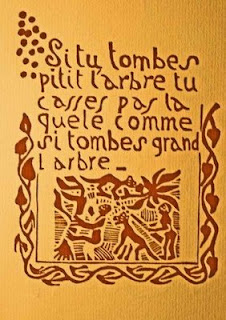 Si tu tombes
pitit l'arbre tu
casses pas la
quele comme
si tombes grand
l arbre_